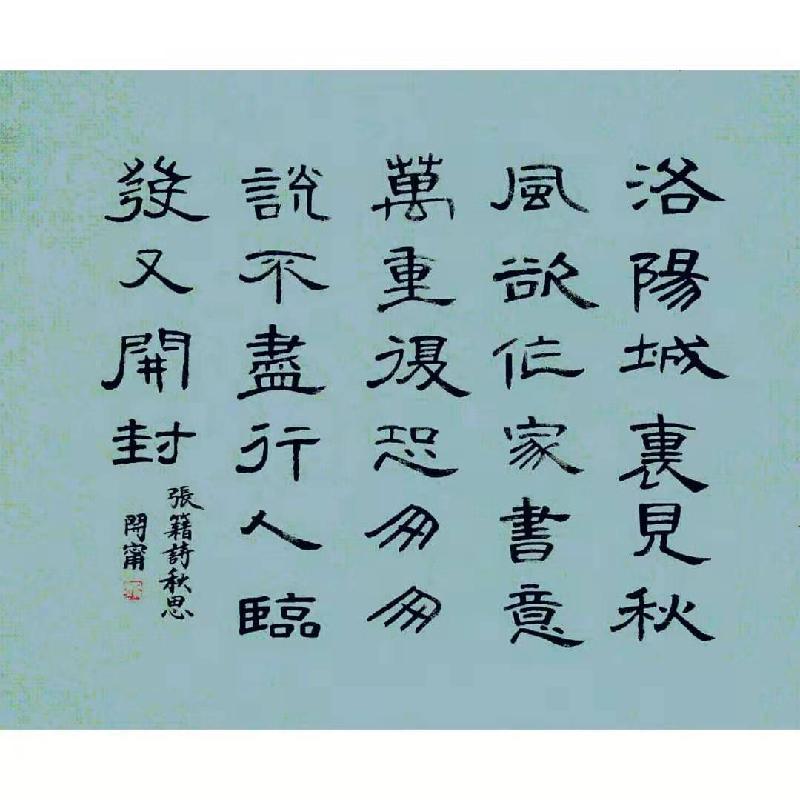 洛陽城裏見秋
風欲作家書意
萬重復恐匆匆
說不盡行人臨
發又開封
張籍詩秋思
甯